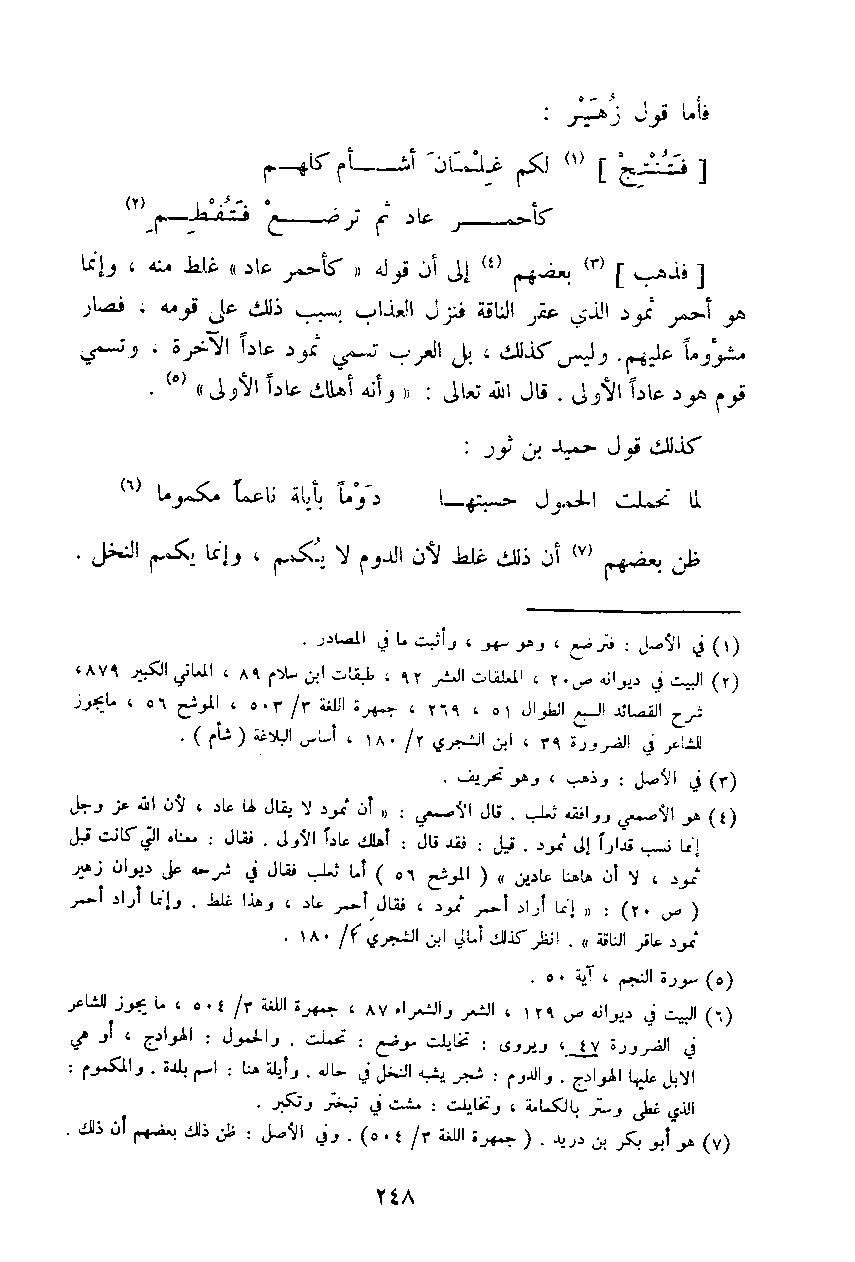 فأما قول زُهَيْر :
[ فَتُنْتِجْ ] (١) لكم غِلْمَانَ أشـــأم كلهـم
كأحمـــر عاد ثم ترضـــعْ فَتُفْطِـــمِ (٢)
[ فذهب ] (٣) بعضهم (٤) إلى أن قوله « كأحمر عاد » غلط منه ، وإنما
هو أحمر ثمود الذي عقر الناقة فنزل العذاب بسبب ذلك على قومه ، فصار
مشؤوماً عليهم. وليس كذلك ، بل العرب تسمي ثمود عاداً الآخرة ، وتسمي
قوم هود عاداً الأولى . قال الله تعالى : « وأنه أهلك عاداً الأولى » (٥) .
كذلك قول حميد بن ثور :
لما تحملت الحمول حسبتهـا دَوْماً بأيلة ناعماً مكموما (٦)
ظن بعضهم (٧) أن ذلك غلط لأن الدوم لا يُكمم ، وإنما يكمم النخل .
(١) في الأصل : فترضع ، وهو سهو ، وأثبت ما في المصادر .
(٢) البيت في ديوانه ص٢٠ ، المعلقات العشر ٩٢ ، طبقات ابن سلام ٨٩ ، المعاني الكبير ٨٧٩،
شرح القصائد السبع الطوال ٥١ ، ٢٦٩ ، جمهرة اللغة ٣/ ٥٠٣ ، الموشح ٥٦ ، مايجوز
للشاعر في الضرورة ٣٩ ، ابن الشجري ٢/ ١٨٠ ، أساس البلاغة ( شأم ) .
(٣) في الأصل : وذهب ، وهو تحريف .
(٤) هو الأصمعي ووافقه ثعلب . قال الأصمعي : « أن ثمود لا يقال لها عاد ، لأن الله عز وجل
إنما نسب قداراً إلى ثمود . قيل : فقد قال : أهلك عاداً الأولى . فقال : معناه التي كانت قبل
ثمود ، لا أن هاهنا عادين » ( الموشح ٥٦ ) أما ثعلب فقال في شرحه على ديوان زهير
( ص ٢٠) : « إنما أراد أحمر ثمود ، فقال أحمر عاد ، وهذا غلط . وإنما أراد أحمر
ثمود عاقر الناقة » . انظر كذلك أمالي ابن الشجري ٢/ ١٨٠ .
(٥) سورة النجم ، آية ٥٠ .
(٦) البيت في ديوانه ص ١٢٩ ، الشعر والشعراء ٨٧ ، جمهرة اللغة ٣/ ٥٠٤ ، ما يجوز للشاعر
في الضرورة ٤٧ ، ويروى : تخايلت موضع : تحملت . والحمول : الهوادج ، أو هي
الابل عليها الهوادج . والدوم : شجر يشبه النخل في حاله . وأيلة هنا : اسم بلدة . والمكموم :
الذي غطى وستر بالكمامة ، وتخايلت : مشت في تبختر وتكبر .
(٧) هو أبو بكر بن دريد . ( جمهرة اللغة ٣/ ٥٠٤) . وفي الأصل : ظن ذلك بعضهم أن ذلك .
٢٤٨